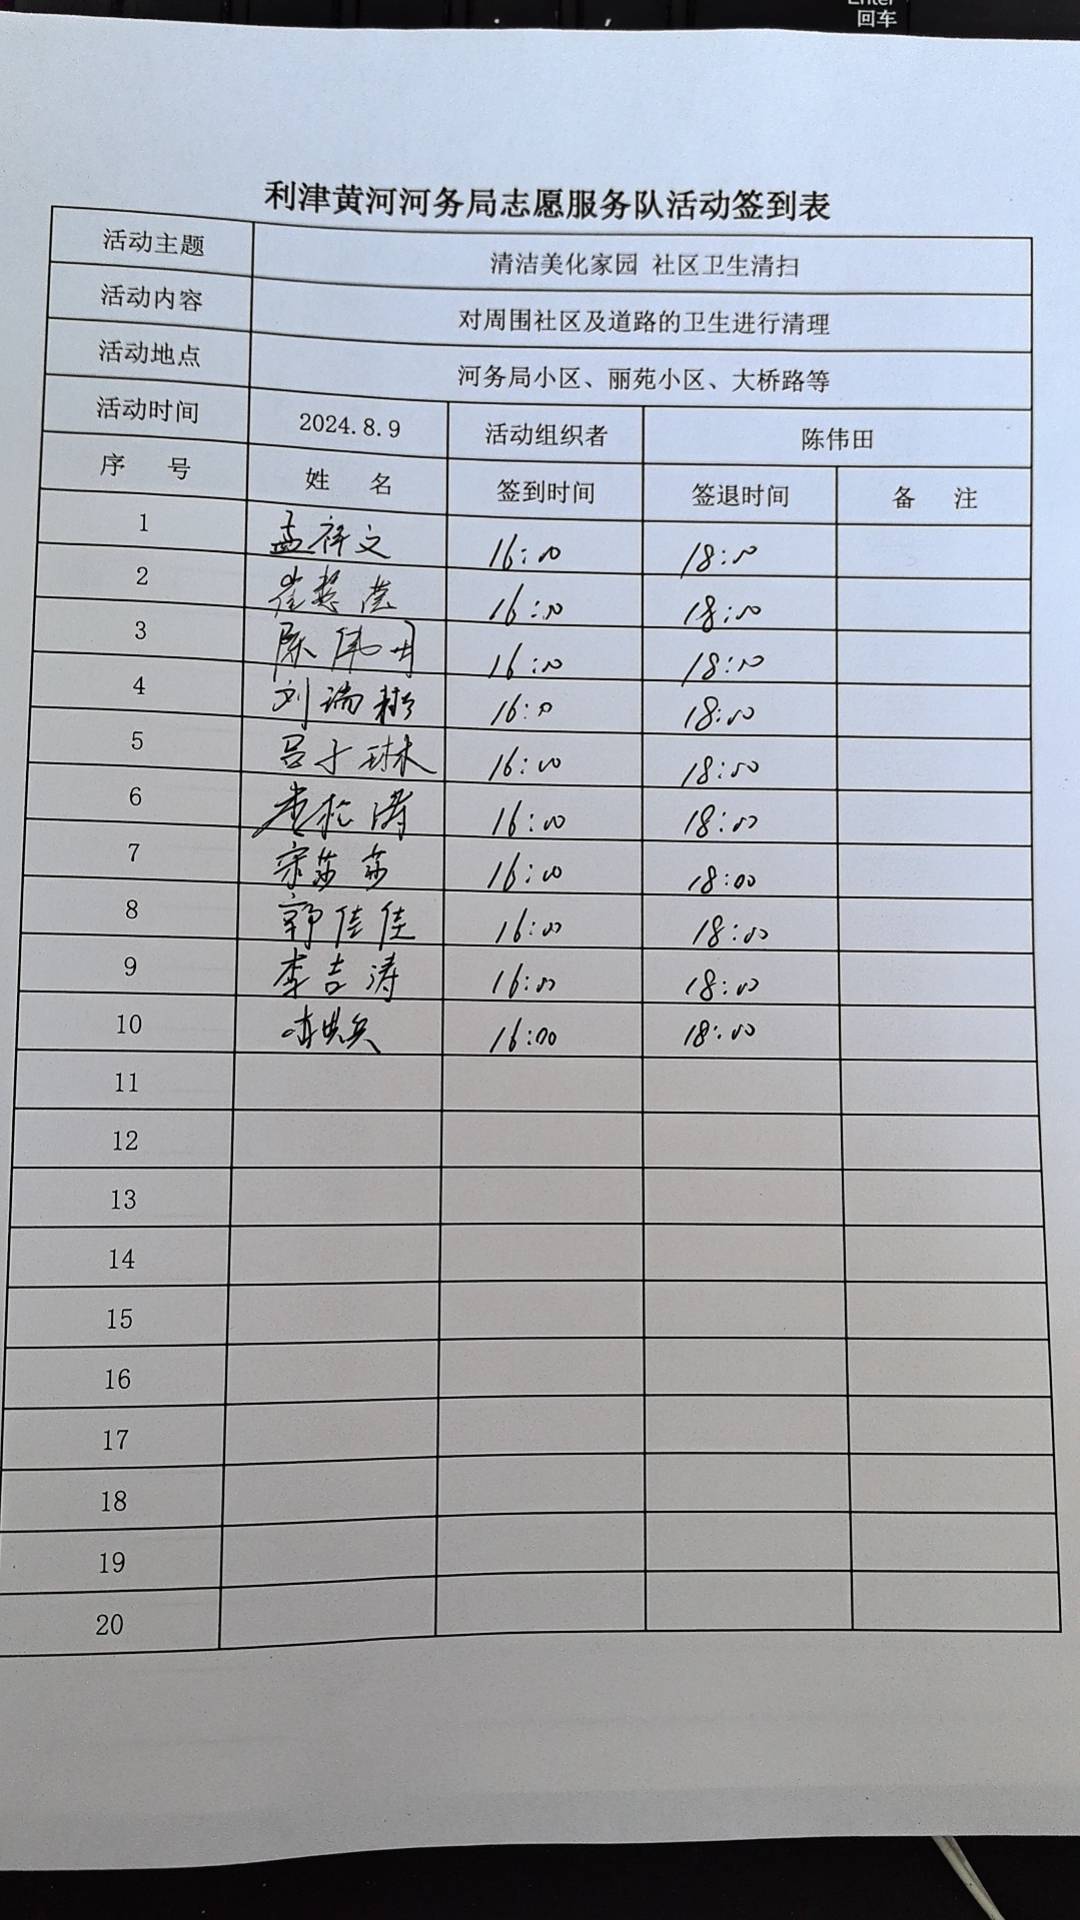 Enter
回车
利津黄河河务局志愿服务队活动签到表
活动主题 清洁美化家园 社区卫生清扫
活动内容 对周围社区及道路的卫生进行清理
活动地点 河务局小区、丽苑小区、大桥路等
活动时间 2024.8.9 活动组织者 陈伟田
序 号 姓 名 签到时间 签退时间 备 注
1 孟祥文 16:00 18:00
2 崔慧莹 16:00 18:00
3 陈伟田 16:00 18:00
4 刘瑞彬 16:00 18:00
5 吕子琳 16:00 18:00
6 松涛 16:00 18:00
7 宋莎莎 16:00 18:00
8 郭佳佳 16:00 18:00
9 李吉涛 16:00 18:00
10 16:00 18:00
11
12
13
14
15
16
17
18
19
20